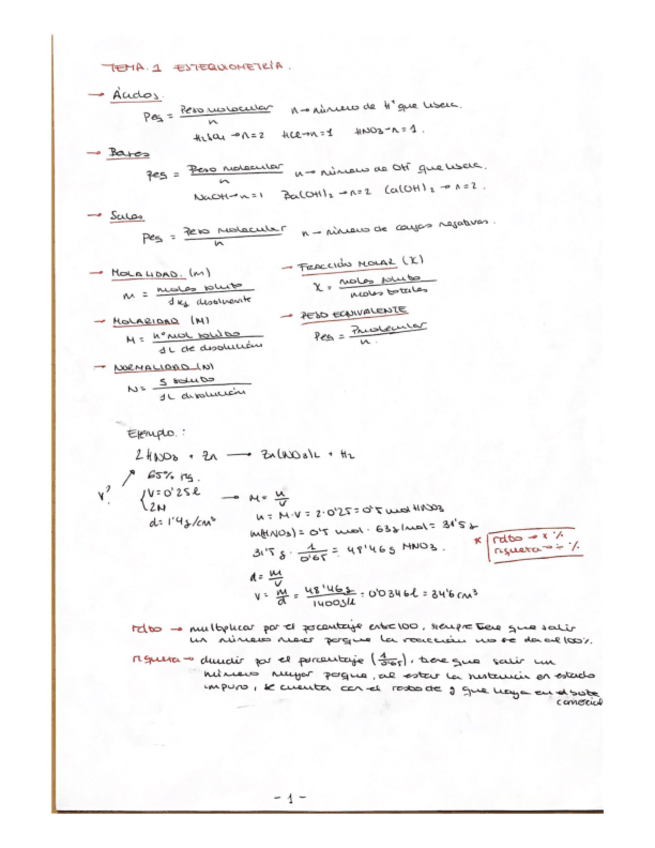 TEMA.1 ESTEQUIOMETRÍA.
→ Ácidos.
Peq = Peso molecular / n    n → número de H⁺ que libera.
H₂SO₄ → n=2   HCl → n=1   HNO₃ → n=1.
→ Bases
Peq = Peso molecular / n    n → número de OH⁻ que libera.
NaOH → n=1   Ba(OH)₂ → n=2   Ca(OH)₂ → n=2.
→ Sales
Peq = Peso molecular / n    n → número de cargas negativas.
→ MOLALIDAD. (m)
m = moles soluto / 1 kg disolvente
→ MOLARIDAD (M)
M = nº mol soluto / 1L de disolución
→ NORMALIDAD (N)
N = soluto / 1L disolución
→ FRACCIÓN MOLAR (X)
X = moles soluto / moles totales
→ PESO EQUIVALENTE
Peq = Pmolecular / n.
Ejemplo.:
2 HNO₃ + Zn → Zn(NO₃)₂ + H₂
65% rq.
V?
V=0'25 l
2M
d=1'4g/cm³
→ M = n/V
n = M·V = 2·0'25 = 0'5 mol HNO₃
m(HNO₃) = 0'5 mol · 63g/mol = 31'5 g
31'5 g · 1/0'65 = 48'46 g HNO₃.
d = m/V
V = m/d = 48'46g / 1400g/l = 0'0346 l = 34'6 cm³
* rdto → x %
riqueza → ÷ %
rdto → multiplicar por el porcentaje entre 100, siempre tiene que salir
un número menor porque la reacción no se da al 100%.
riqueza → dividir por el porcentaje (1/0'65), tiene que salir un
número mayor porque, al estar la sustancia en estado
impuro, se cuenta con el resto de g que haya en el bote
comercial
- 1 -